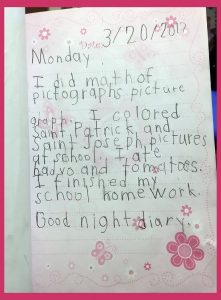 Date: 3/20/2017
Monday
I did math of
pictographs picture
graph. I colored
Saint Patrick and
Saint Joseph pictures
at school. I ate
and tomatoes.
I finished my
school homework.
Good night diary.